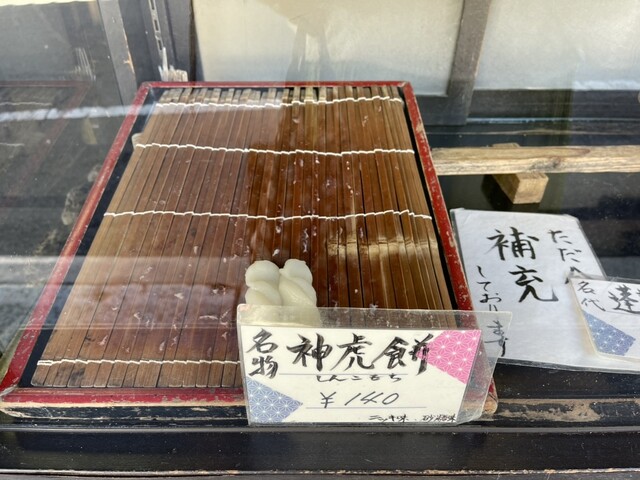 名物
神虎餅
しんこもち
¥140
ニッキ味・砂糖味
ただ今
補充
しております
名代
蓬